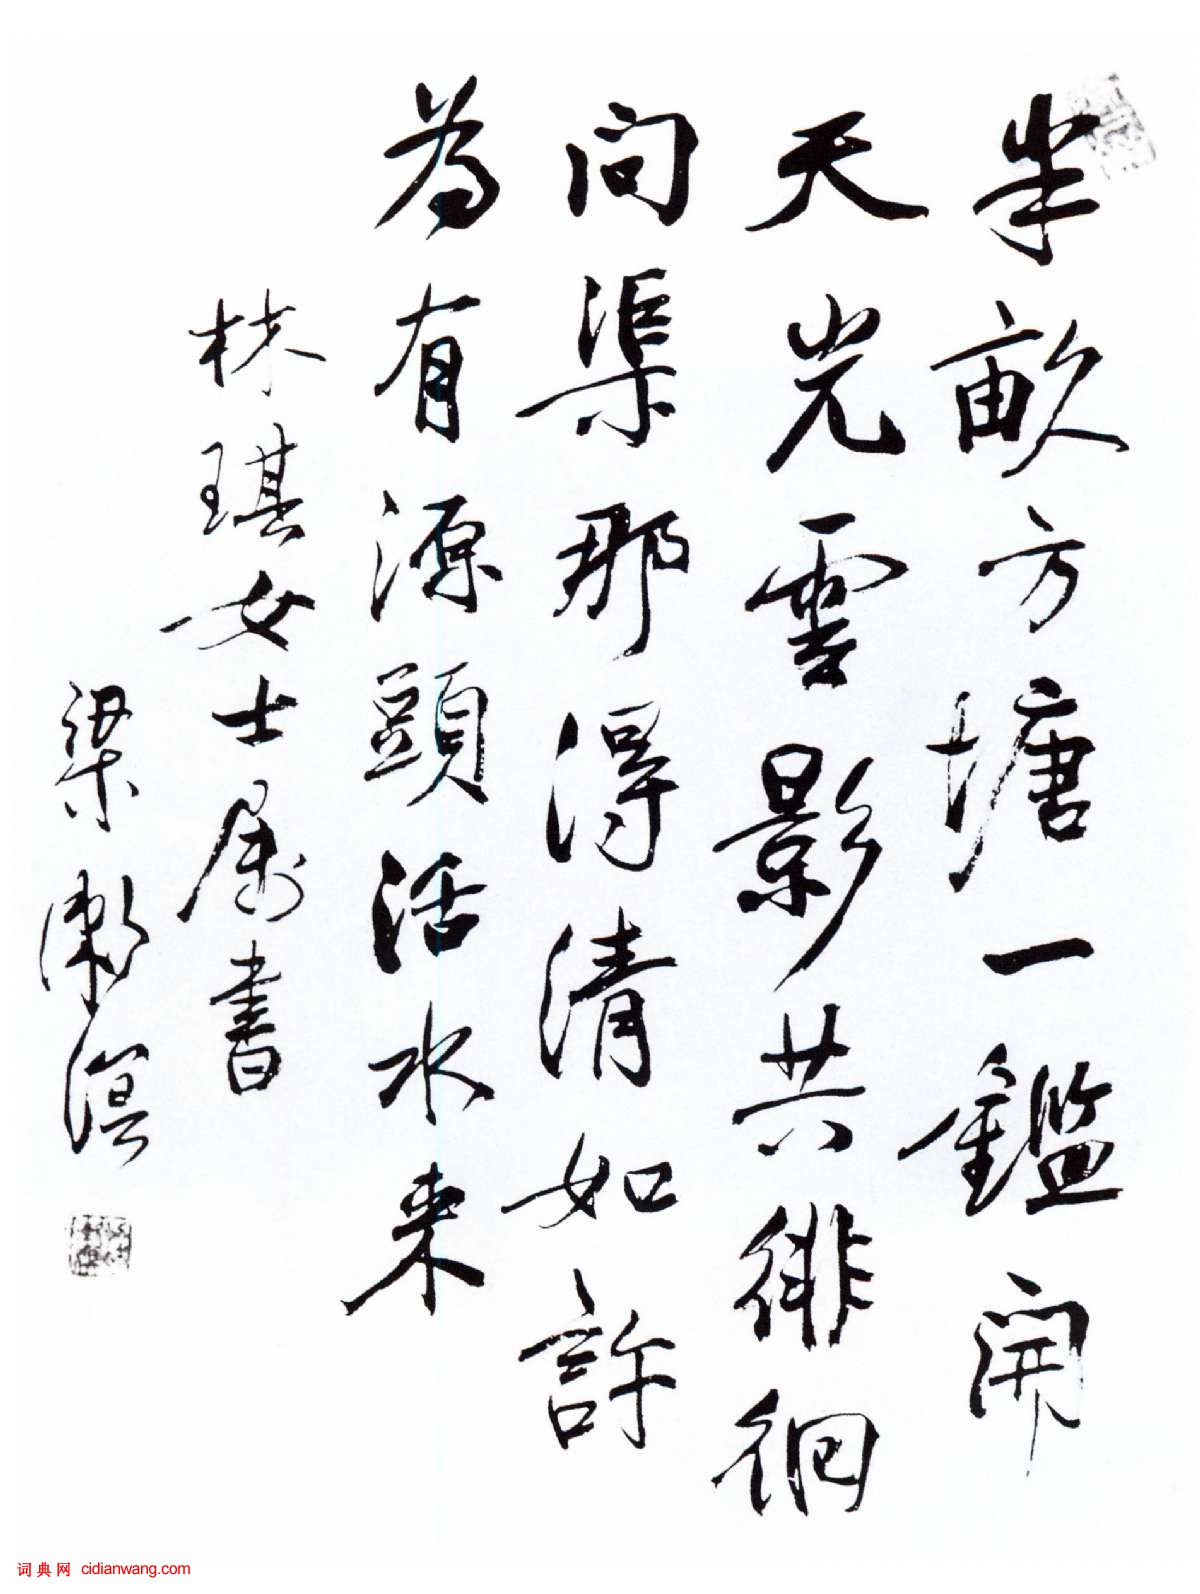 半畝方塘一鑑開
天光雲影共徘徊
问渠那得清如許
為有源頭活水来
林琪女士属書
梁漱溟
词典网 cidianwang.com